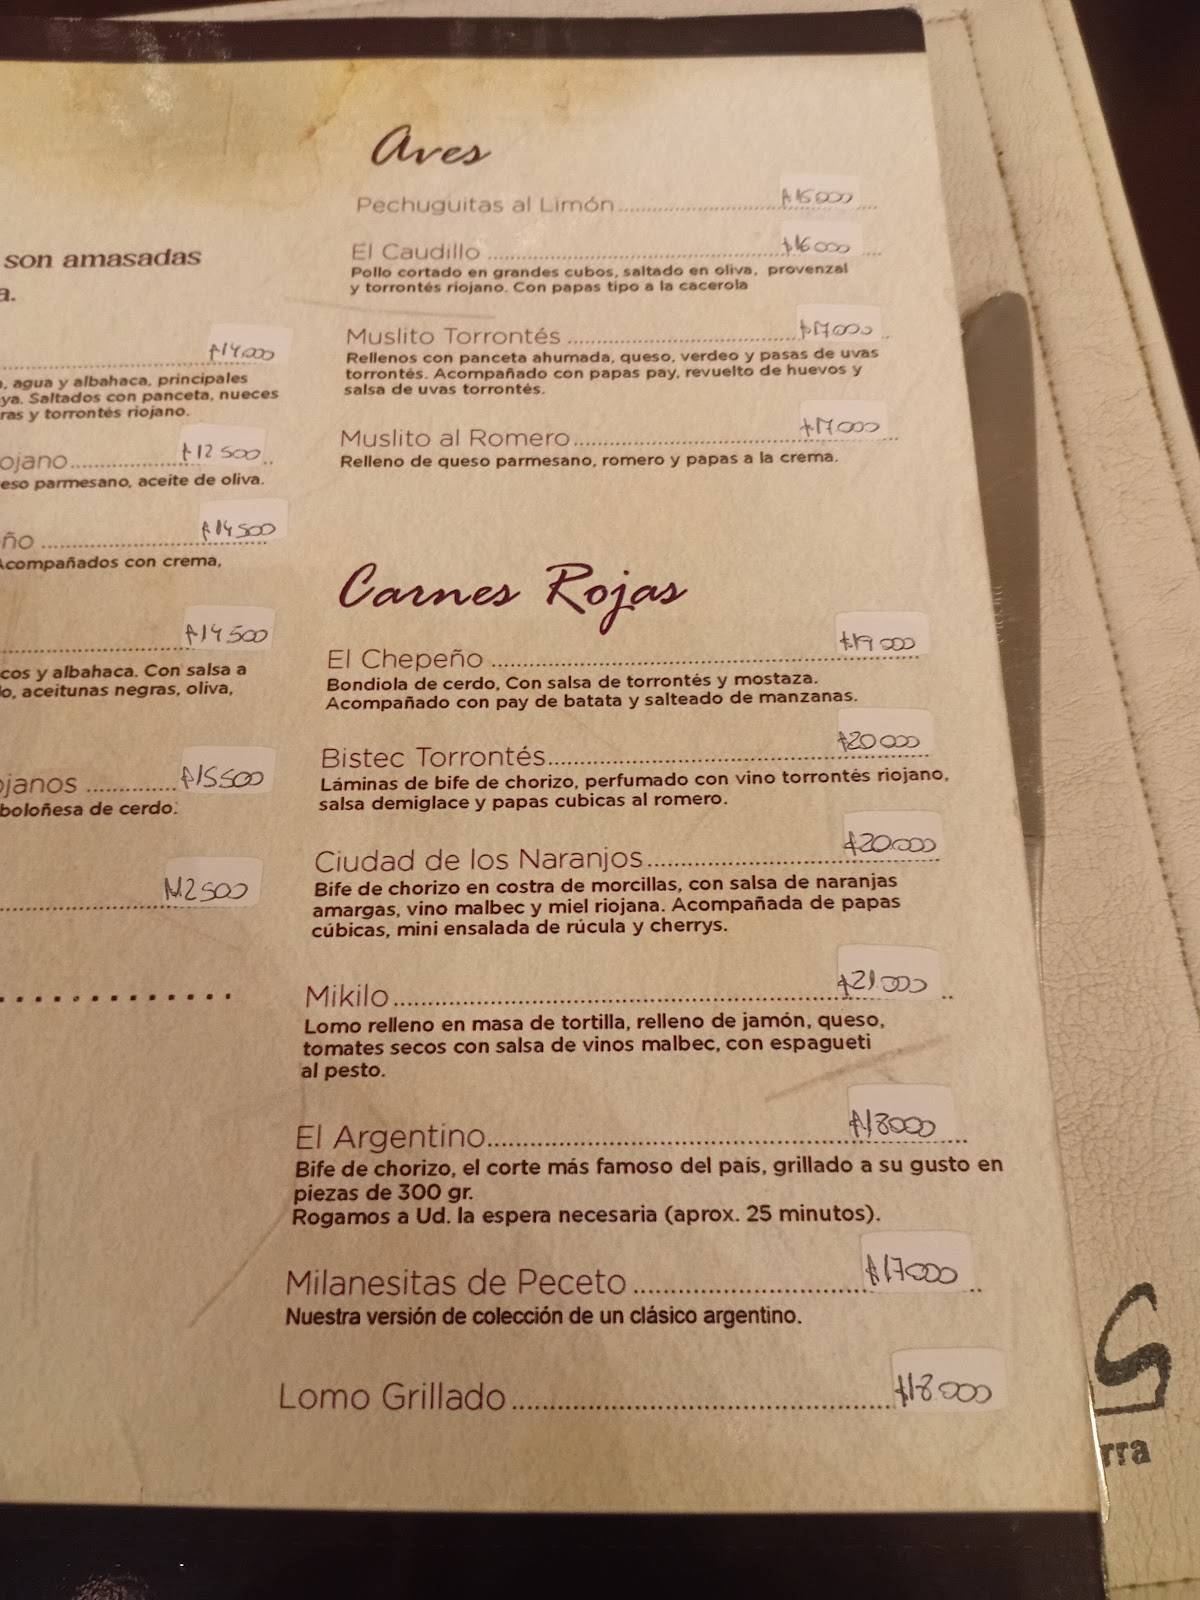 son amasadas
a.
$14.000
, agua y albahaca, principales
ya. Saltados con panceta, nueces
ras y torrontés riojano.
ojano.................... $12 500
eso parmesano, aceite de oliva.
ño .................... $14 500
Acompañados con crema,
$14 500
cos y albahaca. Con salsa a
o, aceitunas negras, oliva,
ojanos .................... $15500
boloñesa de cerdo.
2500
Aves
Pechuguitas al Limón.................... $15000
El Caudillo .................... $16000
Pollo cortado en grandes cubos, saltado en oliva, provenzal
y torrontés riojano. Con papas tipo a la cacerola
Muslito Torrontés .................... $17000
Rellenos con panceta ahumada, queso, verdeo y pasas de uvas
torrontés. Acompañado con papas pay, revuelto de huevos y
salsa de uvas torrontés.
Muslito al Romero.................... $17000
Relleno de queso parmesano, romero y papas a la crema.
Carnes Rojas
El Chepeño .................... $19000
Bondiola de cerdo, Con salsa de torrontés y mostaza.
Acompañado con pay de batata y salteado de manzanas.
Bistec Torrontés.................... $20000
Láminas de bife de chorizo, perfumado con vino torrontés riojano,
salsa demiglace y papas cubicas al romero.
Ciudad de los Naranjos.................... $20.000
Bife de chorizo en costra de morcillas, con salsa de naranjas
amargas, vino malbec y miel riojana. Acompañada de papas
cúbicas, mini ensalada de rúcula y cherrys.
Mikilo.................... $21.000
Lomo relleno en masa de tortilla, relleno de jamón, queso,
tomates secos con salsa de vinos malbec, con espagueti
al pesto.
El Argentino.................... $18000
Bife de chorizo, el corte más famoso del país, grillado a su gusto en
piezas de 300 gr.
Rogamos a Ud. la espera necesaria (aprox. 25 minutos).
Milanesitas de Peceto .................... $17000
Nuestra versión de colección de un clásico argentino.
Lomo Grillado .................... $18000
S
rra